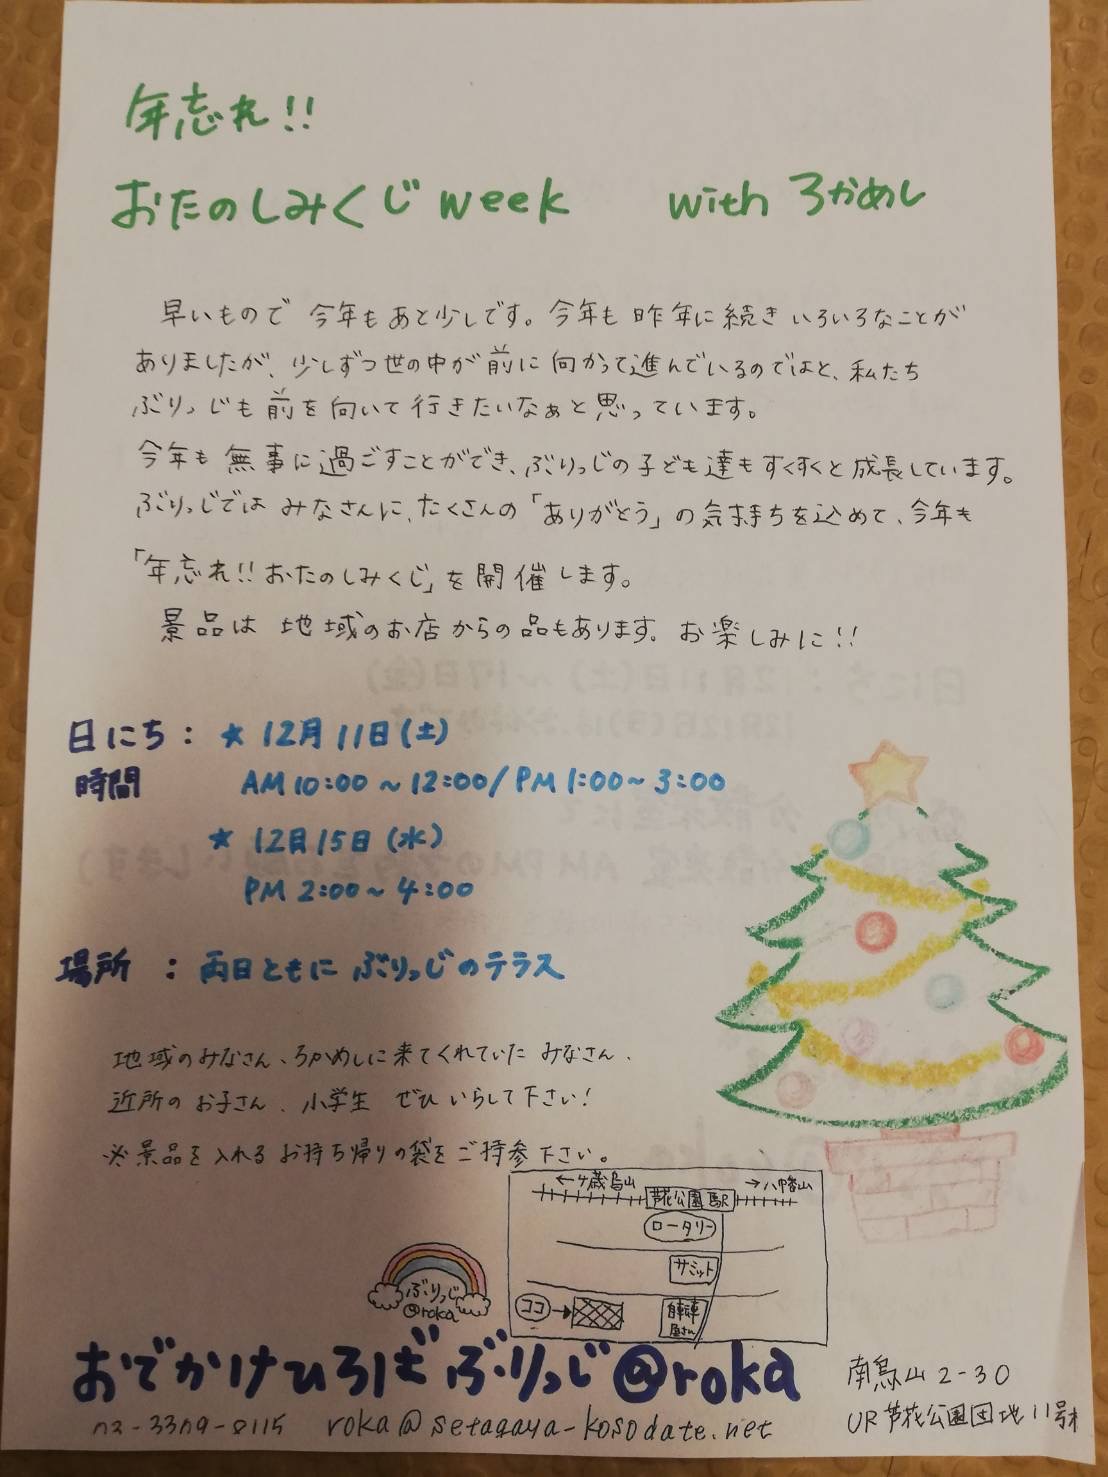 年忘れ!!
おたのしみくじ week with ろかめし
早いもので 今年もあと少しです。今年も昨年に続きいろいろなことが
ありましたが、少しずつ世の中が前に向かって進んでいるのではと、私たち
ぶりっじも前を向いて行きたいなぁと思っています。
今年も無事に過ごすことができ、ぶりっじの子ども達もすくすくと成長しています。
ぶりっじではみなさんに、たくさんの「ありがとう」の気持ちを込めて、今年も
「年忘れ!!おたのしみくじ」を開催します。
景品は地域のお店からの品もあります。お楽しみに!!
日にち: ★ 12月11日(土)
時間 AM10:00~12:00/PM1:00~3:00
★ 12月15日(水)
PM2:00~4:00
場所 : 両日ともに ぶりっじのテラス
地域のみなさん、ろかめしに来てくれていた みなさん、
近所のお子さん、小学生 ぜひ いらして下さい!
※景品を入れるお持ち帰りの袋をご持参下さい。
←千歳烏山 芦花公園駅 →八幡山
ロータリー
サミット
ココ→
自転車屋さん
ぶりっじ
@roka
おでかけひろば ぶりっじ@roka
03-3309-8115 roka@setagaya-kosodate.net
南烏山2-30
UR芦花公園団地11号